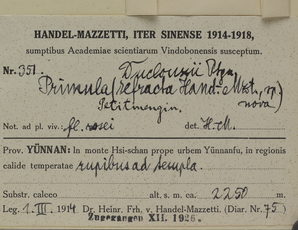 HANDEL-MAZZETTI, ITER SINENSE 1914-1918,
sumptibus Academiae scientiarum Vindobonensis susceptum.
Nr. 351. Duclouxii
Primula (refracta Hand.-Mzt., sp.
Petitmengin. nova)
Not. ad pl. viv.: fl. rosei det. H.-M.
Prov. YÜNNAN: In monte Hsi-schan prope urbem Yünnanfu, in regionis
calide temperatae rupibus ad templa.
Substr. calceo alt. s. m. ca. 2250 m.
Leg. 1. III. 1914 Dr. Heinr. Frh. v. Handel-Mazzetti. (Diar. Nr. 75)
Zugegangen XII. 1926.